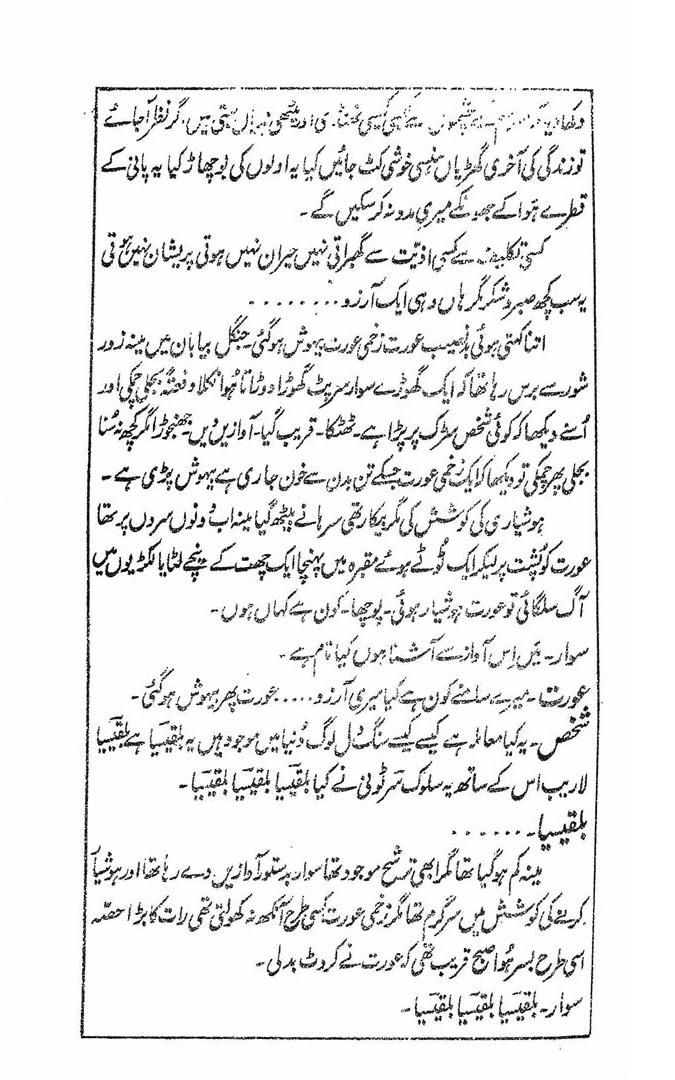 کیسی ٹھنڈی اور میٹھی نہریں بہتی ہیں۔ گر نظر آجائے
تو زندگی کی آخری گھڑیاں ہنسی خوشی کٹ جائیں کیا یہ اولوں کی بوچھاڑ کیا یہ پانی کے
قطرے ہوا کے جھونکے میری مدد نہ کرسکیں گے۔
کسی تکلیف سے کسی اذیّت سے گھبراتی نہیں حیران نہیں ہوتی پریشان نہیں ہوتی
یہ سب کچھ صبر و شکر مگر ہاں وہی ایک آرزو........
اتنا کہتی ہوئی بدنصیب عورت زخمی عورت بیہوش ہوگئی۔ جنگل بیابان میں مینہ زور
شور سے برس رہا تھا کہ ایک گھوڑے سوار سرپٹ گھوڑا دوڑاتا ہُوا نکلا دفعتہً بجلی چمکی اور
اُسنے دیکھا کہ کوئی شخص سڑک پر پڑا ہے۔ ٹھٹکا۔ قریب گیا۔ آوازیں دیں۔ جھنجوڑا مگر کچھ نہ سُنا
بجلی پھر چمکی تو دیکھا کہ ایک زخمی عورت جسکے تن بدن سے خون جاری ہے بیہوش پڑی ہے۔
ہوشیاری کی کوشش کی مگر بیکار تھی سرہانے بیٹھ گیا مینہ اب دونوں سردں پر تھا
عورت کو پُشت پر لیکر ایک ٹوٹے ہوئے مقبرہ میں پہنچا ایک چھت کے نیچے لٹایا لکڑیوں میں
آگ سلگائی تو عورت ہوشیار ہوئی۔ پوچھا۔ کون ہے کہاں ہوں۔
سوار۔ میں اِس آواز سے آشنا ہوں کیا نام ہے۔
عورت۔ میرے سامنے کون ہے کیا میری آرزو..... عورت پھر بیہوش ہوگئی۔
شخص۔ یہ کیا معاملہ ہے کیسے کیسے سنگ دل لوگ دُنیا میں موجود ہیں یہ بلقیسیا ہے بلقیسیا
لاریب اس کے ساتھ یہ سلوک نے کیا بلقیسیا بلقیسیا بلقیسیا۔
بلقیسیا۔ ......
مینہ کم ہوگیا تھا مگر ابھی ترشح موجود تھا سوار بدستور آوازیں دے رہا تھا اور ہوشیار
کرنے کی کوشش میں سرگرم تھا مگر زخمی عورت کسی طرح آنکھ نہ کھولتی تھی رات کا بڑا حصّہ
اسی طرح بسر ہُوا صبح قریب تھی کہ عورت نے کروٹ بدلی۔
سوار۔ بلقیسیا بلقیسیا بلقیسیا۔